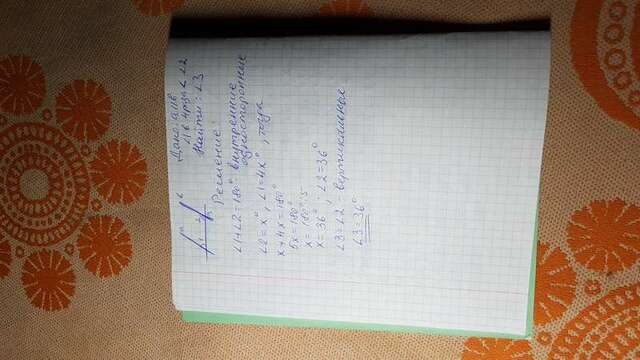 a
в
1
2
3
Дано: a||в
∠1 в 4 раза < ∠2
Найти: ∠3
Решение:
∠1+∠2=180° внутренние
односторонние
∠2=x°, ∠1=4x°, тогда
x+4x=180°
5x=180°
x=180°:5
x=36°, ∠2=36°
∠3=∠2 - вертикальные
∠3=36°